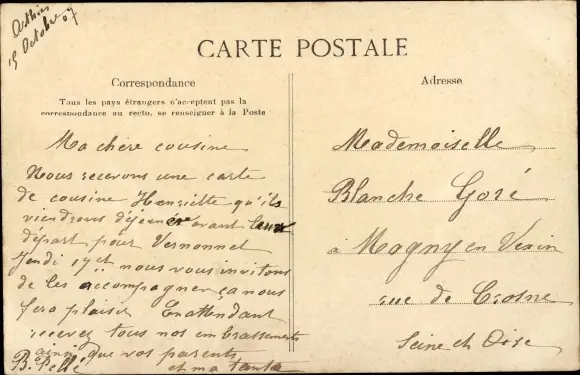 Athies
15 Octobre 07
CARTE POSTALE
Correspondance
Tous les pays étrangers n'acceptent pas la
correspondance au recto. se renseigner à la Poste
Ma chère cousine
Nous recevons une carte
de cousine Henriette qu'ils
viendrons déjeuner avant leur
départ pour Vernonnet
Jeudi 17 ct nous vous invitons
de les accompagner ça nous
fera plaisir En attendant
recevez tous nos embrassements
ainsi que vos parents
B. Pellé et ma tante
Adresse
Mademoiselle
Blanche Goré
à Magny en Vexin
rue de Crosne
Seine et Oise